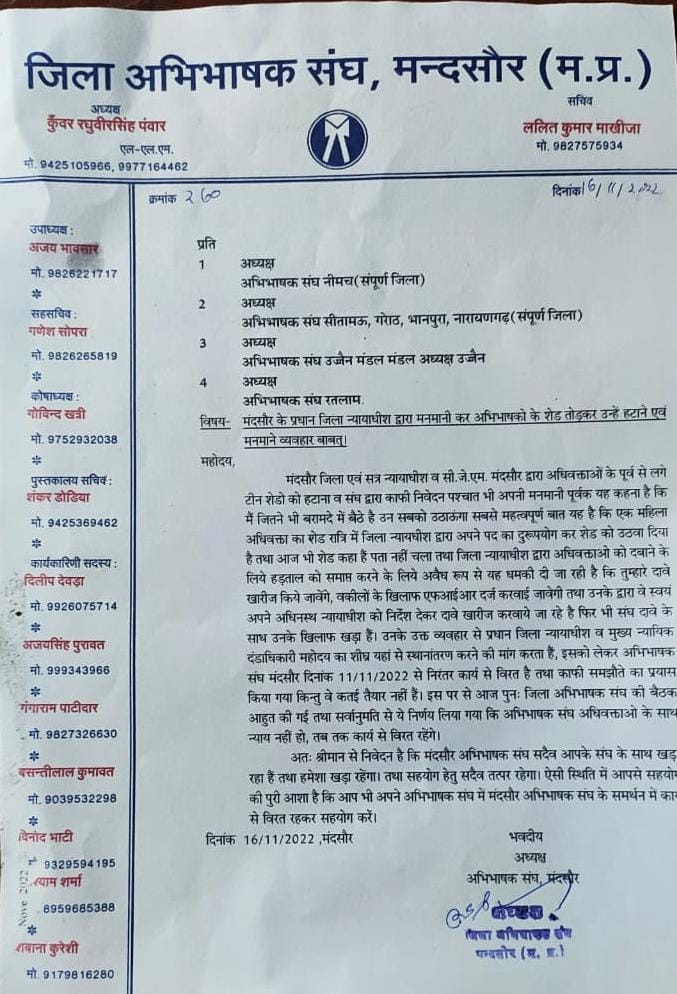 जिला अभिभाषक संघ, मन्दसौर (म.प्र.)
अध्यक्ष
कुँवर रघुवीरसिंह पंवार
एल-एल.एम.
मो. 9425105966, 9977164462
सचिव
ललित कुमार माखीजा
मो. 9827575934
क्रमांक 260
दिनांक 16/11/2022
उपाध्यक्ष :
अजय भावसार
मो. 9826221717
*
सहसचिव :
गणेश सोपरा
मो. 9826265819
*
कोषाध्यक्ष :
गोविन्द खत्री
मो. 9752932038
*
पुस्तकालय सचिव :
शंकर डोडिया
मो. 9425369462
*
कार्यकारिणी सदस्य :
दिलीप देवड़ा
मो. 9926075714
*
अजयसिंह पुरावत
मो. 999343966
*
गंगाराम पाटीदार
मो. 9827326630
*
बसन्तीलाल कुमावत
मो. 9039532298
*
विनोद भाटी
9329594195
श्याम शर्मा
8959685388
*
शबाना कुरेशी
मो. 9179816280
प्रति
1 अध्यक्ष
अभिभाषक संघ नीमच(संपूर्ण जिला)
2 अध्यक्ष
अभिभाषक संघ सीतामऊ, गरोठ, भानपुरा, नारायणगढ़(संपूर्ण जिला)
3 अध्यक्ष
अभिभाषक संघ उज्जैन मंडल मंडल अध्यक्ष उज्जैन
4 अध्यक्ष
अभिभाषक संघ रतलाम.
विषय- मंदसौर के प्रधान जिला न्यायाधीश द्वारा मनमानी कर अभिभाषको के शेड तोड़कर उन्हें हटाने एवं
मनमाने व्यवहार बाबत्।
महोदय,
मंदसौर जिला एवं सत्र न्यायाधीश व सी.जे.एम. मंदसौर द्वारा अधिवक्ताओं के पूर्व से लगे
टीन शेडो को हटाना व संघ द्वारा काफी निवेदन पश्चात भी अपनी मनमानी पूर्वक यह कहना है कि
मैं जितने भी बरामदे में बैठे है उन सबको उठाऊंगा सबसे महत्वपूर्ण बात यह है कि एक महिला
अधिवक्ता का शेड रात्रि में जिला न्यायधीश द्वारा अपने पद का दुरूपयोग कर शेड को उठवा दिया
है तथा आज भी शेड कहा हैं पता नहीं चला तथा जिला न्यायाधीश द्वारा अधिवक्ताओ को दबाने के
लिये हड़ताल को समाप्त करने के लिये अवैध रूप से यह धमकी दी जा रही है कि तुम्हारे दावे
खारीज किये जावेंगे, वकीलों के खिलाफ एफआईआर दर्ज करवाई जावेगी तथा उनके द्वारा वे स्वयं
अपने अधिनस्थ न्यायाधीश को निर्देश देकर दावे खारीज करवाये जा रहे है फिर भी संघ दावे के
साथ उनके खिलाफ खड़ा हैं। उनके उक्त व्यवहार से प्रधान जिला न्यायाधीश व मुख्य न्यायिक
दंडाधिकारी महोदय का शीघ्र यहां से स्थानांतरण करने की मांग करता हैं, इसको लेकर अभिभाषक
संघ मंदसौर दिनांक 11/11/2022 से निरंतर कार्य से विरत है तथा काफी समझौते का प्रयास
किया गया किन्तु वे कतई तैयार नहीं हैं। इस पर से आज पुनः जिला अभिभाषक संघ की बैठक
आहुत की गई तथा सर्वानुमति से ये निर्णय लिया गया कि अभिभाषक संघ अधिवक्ताओ के साथ
न्याय नहीं हो, तब तक कार्य से विरत रहेंगे।
अतः श्रीमान से निवेदन है कि मंदसौर अभिभाषक संघ सदैव आपके संघ के साथ खड़
रहा हैं तथा हमेशा खड़ा रहेंगा। तथा सहयोग हेतु सदैव तत्पर रहेगा। ऐसी स्थिति में आपसे सहयोग
की पुरी आशा है कि आप भी अपने अभिभाषक संघ में मंदसौर अभिभाषक संघ के समर्थन में का
से विरत रहकर सहयोग करें।
दिनांक 16/11/2022 ,मंदसौर
भवदीय
अध्यक्ष
अभिभाषक संघ, मंदसौर
अध्यक्ष
जिला अभिभाषक संघ
मन्दसौर (म. प्र.)